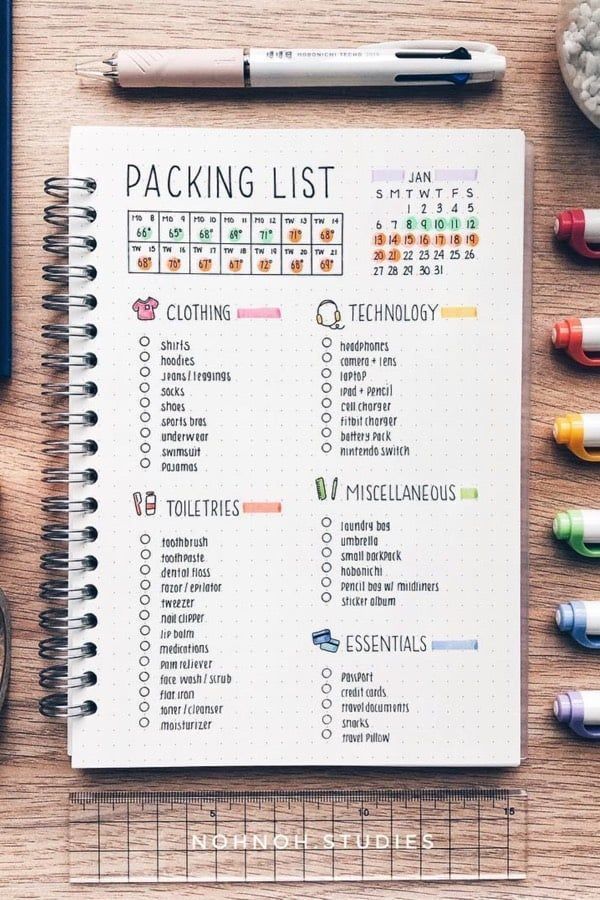 HOBONICHI TECHO 2019
PACKING LIST
MO 8 MO 9 MO 10 MO 11 MO 12 TW 13 TW 14
66° 65° 68° 69° 71° 71° 68°
TW 15 TW 16 TW 17 TW 18 TW 19 TW 20 TW 21
68° 70° 67° 67° 72° 68° 69°
JAN
S M T W T F S
1 2 3 4 5
6 7 8 9 10 11 12
13 14 15 16 17 18 19
20 21 22 23 24 25 26
27 28 29 30 31
CLOTHING
shirts
hoodies
jeans / leggings
socks
shoes
sports bras
underwear
swimsuit
pajamas
TOILETRIES
toothbrush
toothpaste
dental floss
razor / epilator
tweezer
nail clipper
lip balm
medications
pain reliever
face wash / scrub
flat iron
toner / cleanser
moisturizer
TECHNOLOGY
headphones
camera + lens
laptop
ipad + pencil
cell charger
fitbit charger
battery pack
nintendo switch
MISCELLANEOUS
laundry bag
umbrella
small backpack
hobonichi
pencil bag w/ mildliners
sticker album
ESSENTIALS
passport
credit cards
travel documents
snacks
travel pillow
5 10 15
NOHNOH.STUDIES